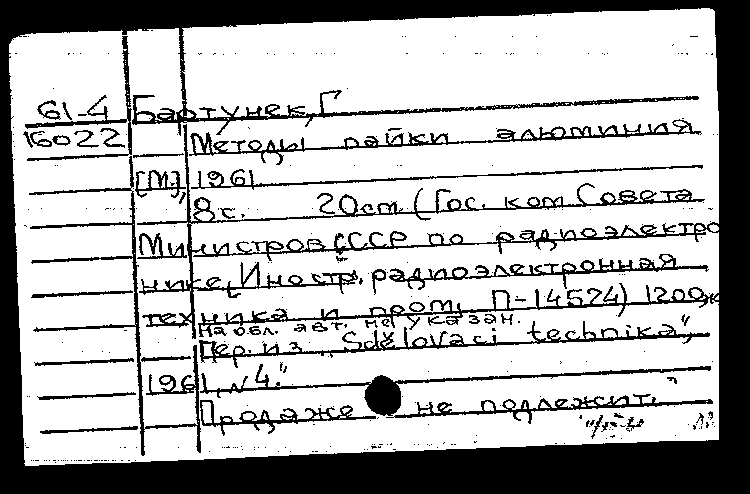 61-4 Бартунек, Г
16022 Методы пайки алюминия
[М], 1961
8 с. 20 см. (Гос. ком Совета
Министров СССР по радиоэлектро
нике. Иностр. радиоэлектронная
техника и пром. П-14524) 1200 эк
На обл. авт. не указан.
Пер. из „Sdělovaci technika",
1961, N 4."
Продаже не подлежит."